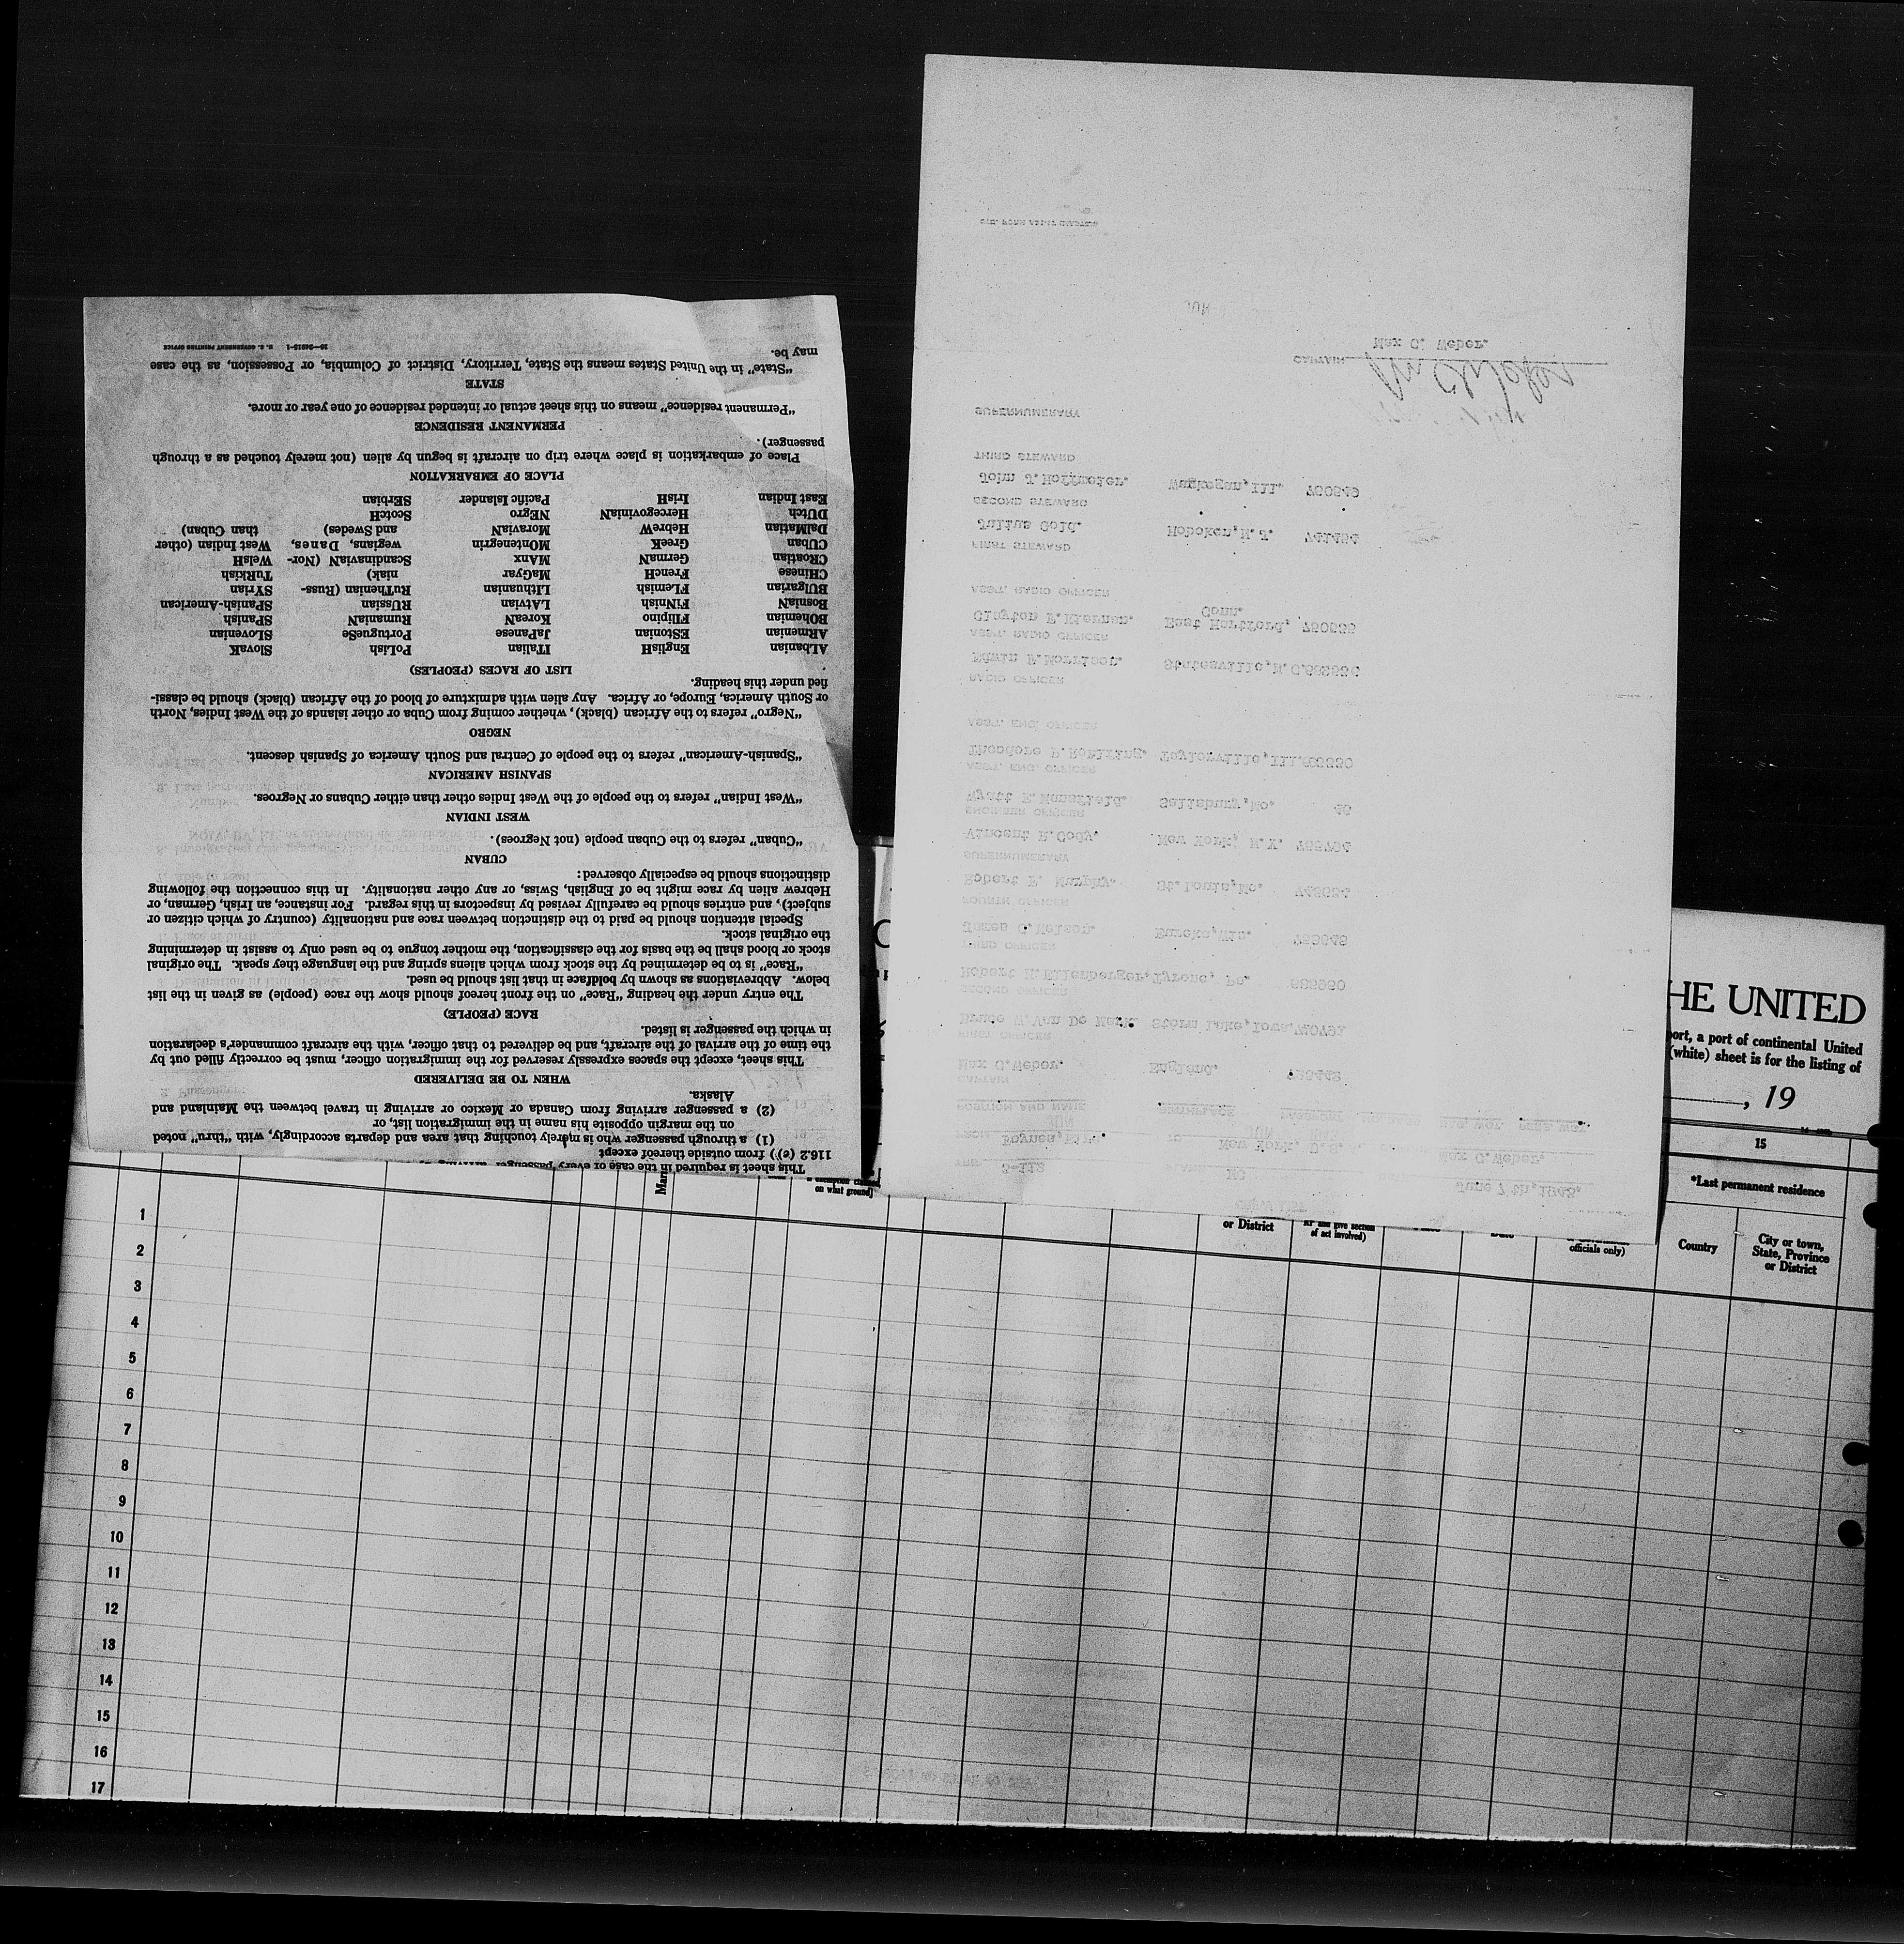 This sheet is required in the case of every passenger arriving
116.2 (e)) from outside thereof except
(1) a through passenger who is merely touching that area and departs accordingly, with "thru" noted
on the margin opposite his name in the immigration list, or
(2) a passenger arriving from Canada or Mexico or arriving in travel between the Mainland and
Alaska.
WHEN TO BE DELIVERED
This sheet, except the spaces expressly reserved for the immigration officer, must be correctly filled out by
the time of the arrival of the aircraft, and be delivered to that officer, with the aircraft commander's declaration
in which the passenger is listed.
RACE (PEOPLE)
The entry under the heading "Race" on the front hereof should show the race (people) as given in the list
below. Abbreviations as shown by boldface in that list should be used.
"Race" is to be determined by the stock from which aliens spring and the language they speak. The original
stock or blood shall be the basis for the classification, the mother tongue to be used only to assist in determining
the original stock.
Special attention should be paid to the distinction between race and nationality (country of which citizen or
subject), and entries should be carefully revised by inspectors in this regard. For instance, an Irish, German, or
Hebrew alien by race might be of English, Swiss, or any other nationality. In this connection the following
distinctions should be especially observed:
CUBAN
"Cuban" refers to the Cuban people (not Negroes).
WEST INDIAN
"West Indian" refers to the people of the West Indies other than either Cubans or Negroes.
SPANISH AMERICAN
"Spanish-American" refers to the people of Central and South America of Spanish descent.
NEGRO
"Negro" refers to the African (black), whether coming from Cuba or other islands of the West Indies, North
or South America, Europe, or Africa. Any alien with admixture of blood of the African (black) should be classi-
fied under this heading.
LIST OF RACES (PEOPLES)
ALbanian EnglisH ITalian PoLish SlovaK
ARmenian EStonian JaPanese PortugueSe SLOvenian
BOhemian FIlipino KoreaN RumaniaN SPanish
BosniaN FiNnish LAtvian RUssian SPanish-American
BUlgarian FLemish LIthuanian RuThenian (Russ- SYrian
CHinese FrencH MaGyar niak) TuRkish
CRoatian GermaN MAnx ScandinaviaN (Nor- WelsH
CUban GreeK MOntenegrin wegians, Danes, West Indian (other
DalMatian HebreW MoraviaN and Swedes) than Cuban)
DUtch HercegoviniaN NEgro ScotcH
East Indian IrisH Pacific Islander SErbian
PLACE OF EMBARKATION
Place of embarkation is place where trip on aircraft is begun by alien (not merely touched as a through
passenger).
PERMANENT RESIDENCE
"Permanent residence" means on this sheet actual or intended residence of one year or more.
STATE
"State" in the United States means the State, Territory, District of Columbia, or Possession, as the case
may be.
16—24915-1 U. S. GOVERNMENT PRINTING OFFICE
June 7 th, 1945.
Max C. Weber.
NC
New York, U.S.
Foynes, Eire.
POSITION AND NAME BIRTHPLACE
CAPTAIN
Max C. Weber. England. 755448
FIRST OFFICER
Bruce W. Van De Mark. Storm Lake, Iowa.
SECOND OFFICER
Robert H. Ellenberger, Tyrone, Pa.
THIRD OFFICER
James C. Nelson. Eureka, Wis.
FOURTH OFFICER
Robert F. Murphy. St. Louis, Mo.
SUPERNUMERARY
Vincent R. Cody. New York, N.Y. 755734
ENGINEER OFFICER
Wyatt E. Mansfield. Salisbury, Mo. 46
ASST. ENG. OFFICER
Theodore F. Rohlfing. Taylorville, Ill.
ASST. ENG. OFFICER
RADIO OFFICER
Edwin F. Morrison. Statesville, N.C.
ASST. RADIO OFFICER
Clayton F. Kiernan. East Hartford, 750555
Conn.
ASST. RADIO OFFICER
FIRST STEWARD
Julius Gold. Hoboken, N.J. 741454
SECOND STEWARD
John J. Hoffmoter. Waukegan, Ill. 750549
THIRD STEWARD
SUPERNUMERARY
CAPTAIN
Max C. Weber.
JUN
HE UNITED
port, a port of continental United
(white) sheet is for the listing of
, 19
15
*Last permanent residence
on what ground]
or District
of act involved)
officials only)
Country
City or town,
State, Province
or District
1
2
3
4
5
6
7
8
9
10
11
12
13
14
15
16
17